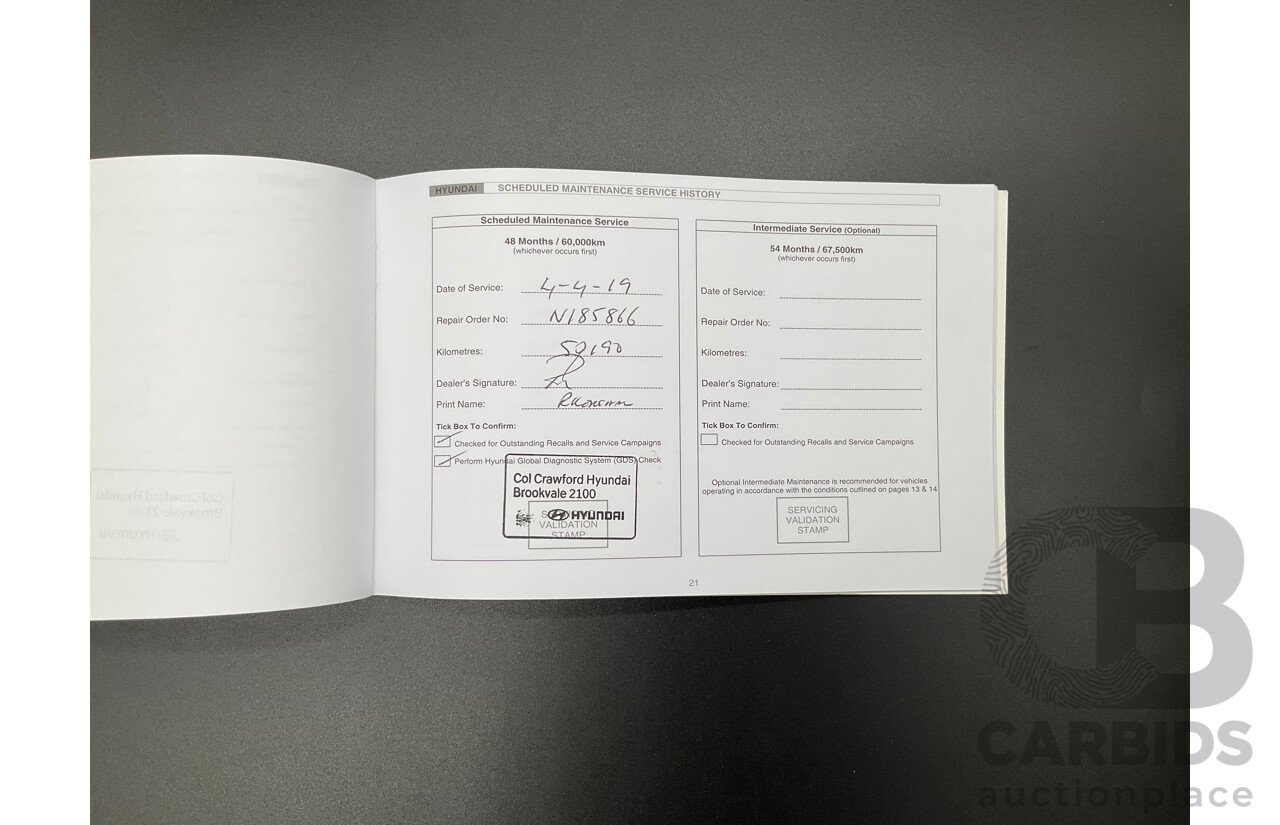 HYUNDAI SCHEDULED MAINTENANCE SERVICE HISTORY
Scheduled Maintenance Service
48 Months / 60,000km
(whichever occurs first)
Date of Service: 4-4-19
Repair Order No: N185866
Kilometres: 50190
Dealer's Signature:
Print Name:
Tick Box To Confirm:
Checked for Outstanding Recalls and Service Campaigns
Perform Hyundai Global Diagnostic System (GDS) Check
Col Crawford Hyundai
Brookvale 2100
HYUNDAI
VALIDATION
STAMP
Intermediate Service (Optional)
54 Months / 67,500km
(whichever occurs first)
Date of Service:
Repair Order No:
Kilometres:
Dealer's Signature:
Print Name:
Tick Box To Confirm:
Checked for Outstanding Recalls and Service Campaigns
Optional Intermediate Maintenance is recommended for vehicles
operating in accordance with the conditions outlined on pages 13 & 14
SERVICING
VALIDATION
STAMP
21
Col Crawford Hyundai
Brookvale 2100
HYUNDAI
CB
CARBIDS
auctionplace